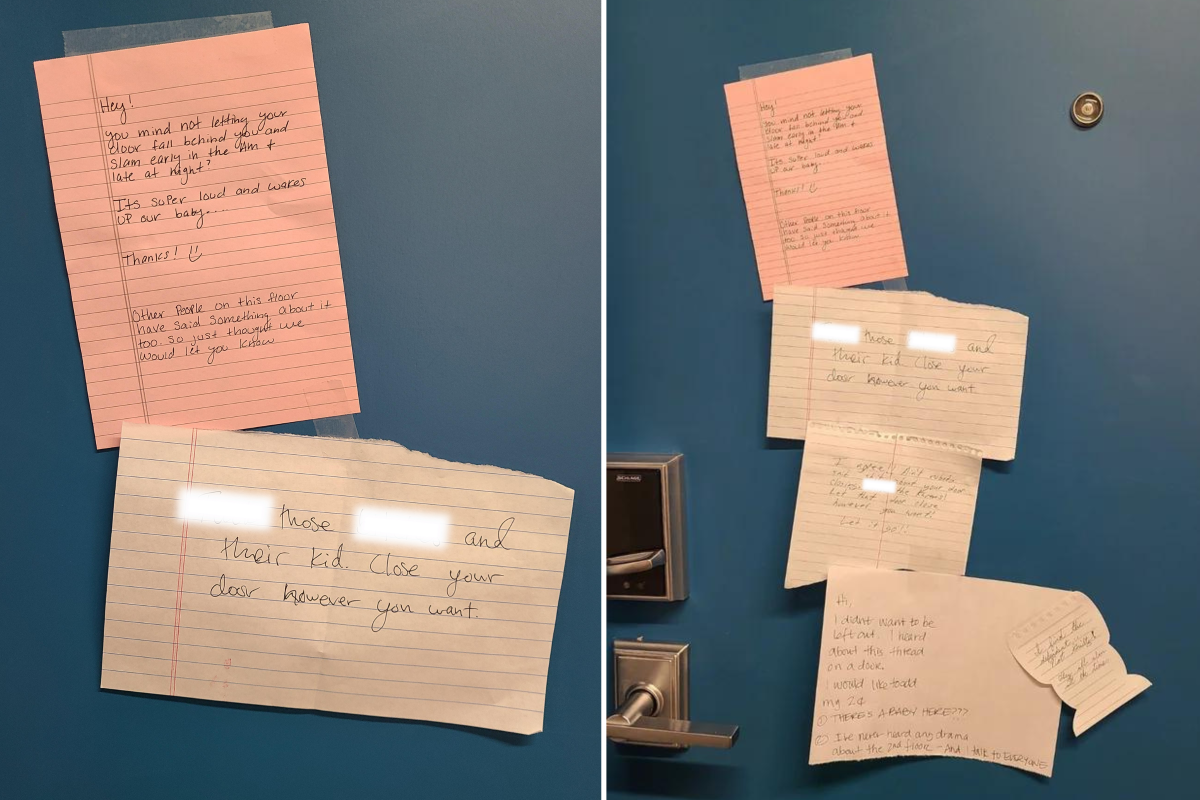 Hey!
you mind not letting your
door fall behind you and
slam early in the Am &
late at night?
Its super loud and wakes
UP our baby....
Thanks! :)
Other People on this floor
have said something about it
too. So just thought we
would let you know
those and
their kid. Close your
door however you want.
Hey!
you mind not letting your
door fall behind you and
slam early in the Am &
late at night?
Its super loud and wakes
UP our baby....
Thanks! :)
Other People on this floor
have said something about it
too. So just thought we
would let you know
those and
their kid. Close your
door however you want.
I agree!
your door
the
Let that door
however you want!
Let it go!!
SCHLAGE
Hi,
I didnt want to be
left out. I heard
about this thread
on a door.
I would like to add
my 2¢
① THERE'S A BABY HERE???
② I've never heard any drama
about the 2nd floor - And I talk to EVERYONE